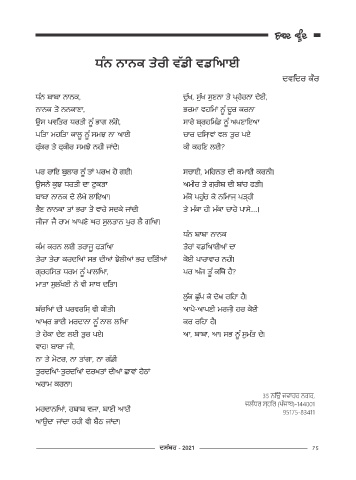 ਧੰਨ ਨਾਨਕ ਤੇਰੀ ਵੱਡੀ ਵਡਿਆਈ
ਦਵਿੰਦਰ ਕੌਰ
ਧੰਨ ਬਾਬਾ ਨਾਨਕ,
ਨਾਨਕ ਤੋਂ ਨਨਕਾਣਾ,
ਉਸ ਪਵਿਤਰ ਧਰਤੀ ਨੂੰ ਭਾਗ ਲੱਗੇ,
ਪਿਤਾ ਮਹਿਤਾ ਕਾਲੂ ਨੂੰ ਸਮਝ ਨਾ ਆਈ
ਫੁੱਕਰ ਤੇ ਫੁਕੀਰ ਸਮਝੇ ਨਹੀਂ ਜਾਂਦੇ।
ਪਰ ਰਾਇ ਬੁਲਾਰ ਨੂੰ ਤਾਂ ਪਰਖ ਹੋ ਗਈ।
ਉਸਨੇ ਕੁਝ ਧਰਤੀ ਦਾ ਟੁਕੜਾ
ਬਾਬਾ ਨਾਨਕ ਦੇ ਲੇਖੇ ਲਾਇਆ।
ਭੈਣ ਨਾਨਕਾ ਤਾਂ ਭਰਾ ਤੋਂ ਵਾਰੇ ਸਦਕੇ ਜਾਂਦੀ
ਜੀਜਾ ਜੈ ਰਾਮ ਆਪਣੇ ਘਰ ਸੁਲਤਾਨ ਪੁਰ ਲੈ ਗਿਆ।
ਕੰਮ ਕਰਨ ਲਈ ਤਰਾਜੂ ਫੜਿਆ
ਤੇਰਾ ਤੇਰਾ ਕਰਦਿਆਂ ਸਭ ਦੀਆਂ ਝੋਲੀਆਂ ਭਰ ਦਿੱਤੀਆਂ
ਗ੍ਰਹਿਸਤ ਧਰਮ ਨੂੰ ਪਾਲਿਆ,
ਮਾਤਾ ਸੁਲੱਖਣੀ ਨੇ ਵੀ ਸਾਥ ਦਿੱਤਾ।
ਬੱਚਿਆਂ ਦੀ ਪਰਵਰਿਸ਼ ਵੀ ਕੀਤੀ।
ਆਖ਼ਰ ਭਾਈ ਮਰਦਾਨਾ ਨੂੰ ਨਾਲ ਲਿਆ
ਤੇ ਹੋਕਾ ਦੇਣ ਲਈ ਤੁਰ ਪਏ।
ਵਾਹ! ਬਾਬਾ ਜੀ,
ਨਾ ਤੇ ਮੋਟਰ, ਨਾ ਤਾਂਗਾ, ਨਾ ਗੱਡੀ
ਤੁਰਦਿਆਂ-ਤੁਰਦਿਆਂ ਦਰਖਤਾਂ ਦੀਆਂ ਛਾਵਾਂ ਹੇਠਾਂ
ਅਰਾਮ ਕਰਨਾ।
ਮਰਦਾਨਿਆਂ, ਰਬਾਬ ਵਜਾ, ਬਾਣੀ ਆਈ
ਆਉਂਦਾ ਜਾਂਦਾ ਰਹੀ ਵੀ ਬੈਠ ਜਾਂਦਾ।
ਦੁੱਖ, ਸੁੱਖ ਸੁਣਨਾ ਤੇ ਪ੍ਰੇਰਨਾ ਦੇਣੀ,
ਭਰਮਾਂ ਵਹਿਮਾਂ ਨੂੰ ਦੂਰ ਕਰਨਾ
ਸਾਰੇ ਬ੍ਰਹਮਿੰਡ ਨੂੰ ਅਪਣਾਇਆ
ਚਾਰ ਦਿਸ਼ਾਵਾਂ ਵਲ ਤੁਰ ਪਏ
ਕੀ ਕਹਿਣ ਲਈ?
ਸਚਾਈ, ਮਹਿਨਤ ਦੀ ਕਮਾਈ ਕਰਨੀ।
ਅਮੀਰ ਤੇ ਗਰੀਬ ਦੀ ਬਾਂਹ ਫੜੀ।
ਮੱਕੇ ਪਹੁੰਚ ਕੇ ਨਮਾਜ਼ ਪੜ੍ਹੀ
ਤੇ ਮੱਕਾ ਹੀ ਮੱਕਾ ਚਾਰੇ ਪਾਸੇ...।
ਧੰਨ ਬਾਬਾ ਨਾਨਕ
ਤੇਰਾ ਵਡਿਆਈਆਂ ਦਾ
ਕੋਈ ਪਾਰਾਵਾਰ ਨਹੀਂ।
ਪਰ ਅੱਜ ਤੂੰ ਕਿੱਥੇ ਹੈਂ?
ਲੁੱਕ ਛੁੱਪ ਕੇ ਦੇਖ ਰਹਿਾ ਹੈ।
ਆਪੋ-ਆਪਣੀ ਮਰਜ਼ੀ ਹਰ ਕੋਈ
ਕਰ ਰਹਿਾ ਹੈ।
ਆ, ਬਾਬਾ, ਆ। ਸਭ ਨੂੰ ਸੁਮੱਤ ਦੇ।
35 ਨਿਊ ਜਵਾਹਰ ਨਗਰ,
ਜਲੰਧਰ ਸ਼ਹਿਰ (ਪੰਜਾਬ)-144001
95175-83411
ਦਸੰਬਰ - 2021
75